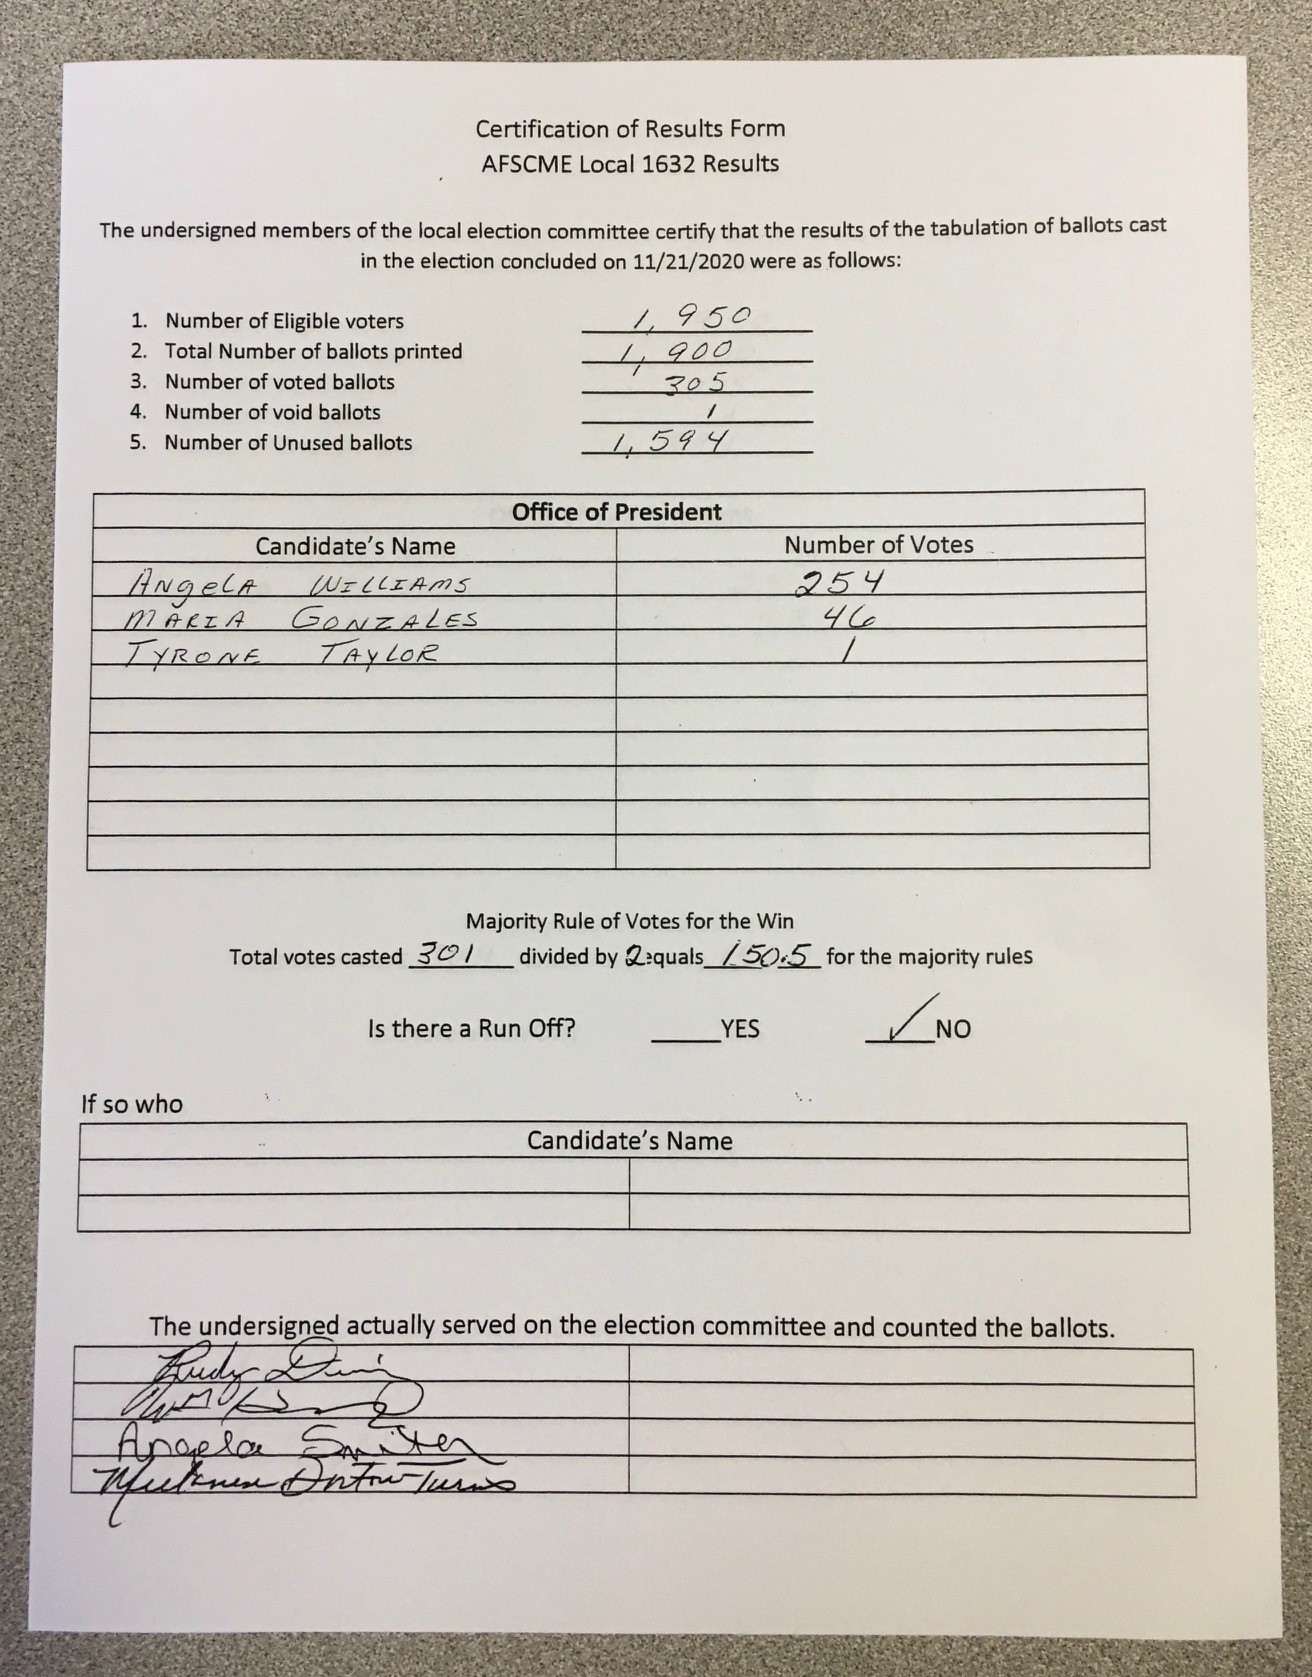 Certification of Results Form
AFSCME Local 1632 Results
The undersigned members of the local election committee certify that the results of the tabulation of ballots cast
in the election concluded on 11/21/2020 were as follows:
1. Number of Eligible voters 1,950
2. Total Number of ballots printed 1,900
3. Number of voted ballots 305
4. Number of void ballots 1
5. Number of Unused ballots 1,594
Office of President
Candidate's Name Number of Votes
Angela Williams 254
Maria Gonzales 46
Tyrone Taylor 1
Majority Rule of Votes for the Win
Total votes casted 301 divided by 2 equals 150.5 for the majority rules
Is there a Run Off? YES ✓ NO
If so who
Candidate's Name
The undersigned actually served on the election committee and counted the ballots.
Rudy
Angela